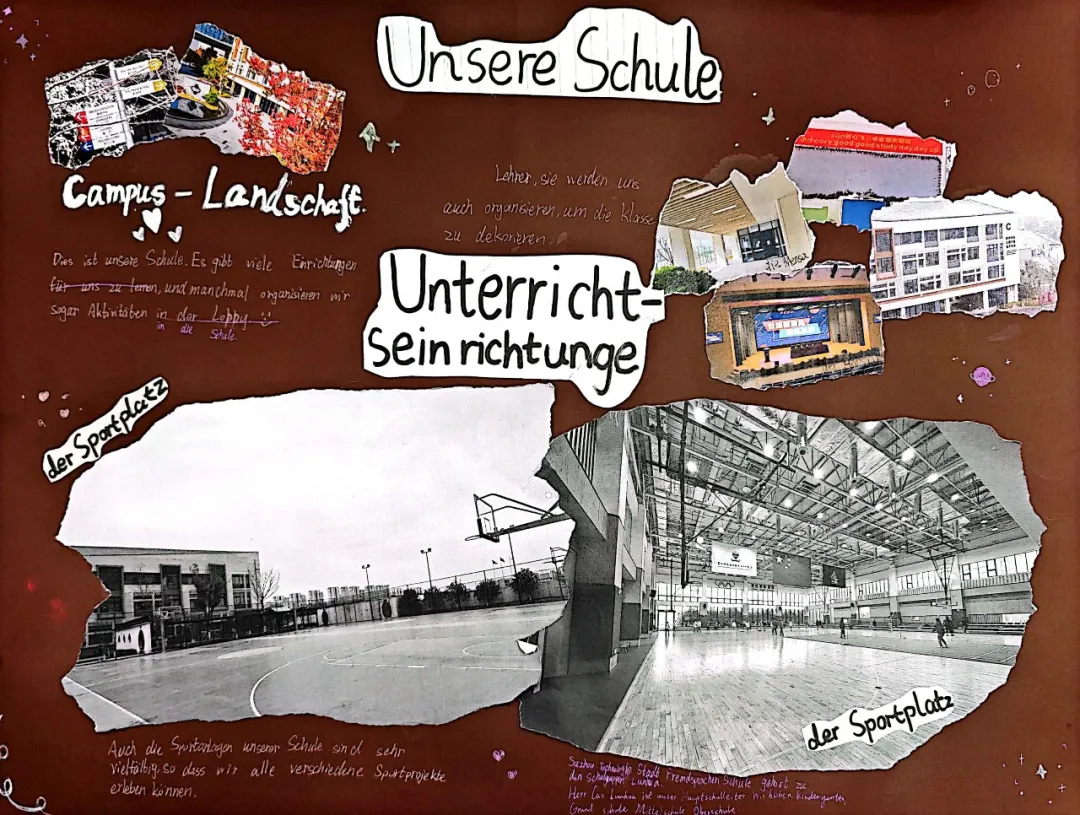 Unsere Schule
Campus - Landschaft.
Dies ist unsere Schule. Es gibt viele Einrichtungen
für uns zu lernen, und manchmal organisieren wir
sogar Aktivitäten in der Lobby
in die Schule
Lehrer, sie werden uns
auch organisieren, um die Klasse
zu dekorieren.
good good study day day up
die Mensa
C
Unterricht-
seinrichtunge
der Sportplatz
der Sportplatz
Auch die Sportanlagen unserer Schule sind sehr
vielfältig, so dass wir alle verschiedene Sportprojekte
erleben können.
Suzhou Stadt Fremdsprachen Schule gehört zu
den Schulgruppen Lunhua.
Herr Cao Lunhua ist unser Hauptschulleiter wir haben Kindergarten,
Grund schule Mittelschule Oberschule